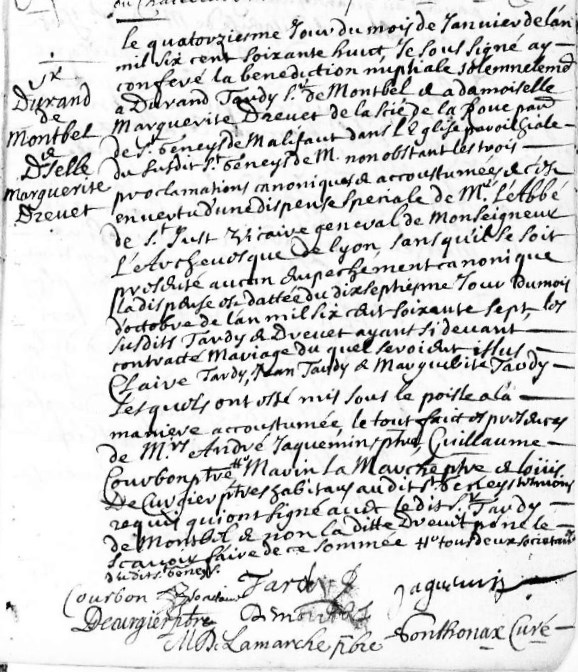 du
Sr
Durand
de
Montbel
&
Dselle
Marguerite
Drevet
le quatorziesme Jour du mois de Janvier de l'an
mil six cent soixante huict, Je sous signé ay
conferé la benediction nuptiale solemnelemt
a Durand Tardy Sr de Montbel & a damoiselle
Marguerite Drevet de la Scie de la Roue parr
de St Geneys de Malifaut dans l'Eglise parroissiale
du susdit St Geneys de M. nonobstant les trois
proclamations canoniques & accoustumées &
en vertu d'une dispense speciale de Mr. l'Abbé
de St Just Vicaire general de Monseigneur
L'Archevesque de lyon, sans qu'il se soit
presenté aucun empechement canonique
la dispense est dattée du dix septiesme Jour du mois
d'octobre de l'an mil six cent soixante sept, les
susdits Tardy & Drevet ayant si devant
contracté Mariage du quel seroient issus
Claire Tardy, Jean Tardy & Marguerite Tardy
Lesquels ont esté mis sous le poisle a la
maniere accoustumée, le tout faict es presences
de Mrs André Jaquemin ptre, Guillaume
Courbon ptre # Marin La Marche ptre & Louis
De Curgier ptres habitans au dit St Geneys tesmoins
requis qui ont signé avec le dit Sr Tardy
de Montbel & non la ditte Drevet pour ne
scavoir faire de ce sommée # tous deux societaires
du dit St Geneys
Courbon Tardy Jaquemin
Decurgier ptre Demontbel
M D. Lamarche ptre Ponthonax Curé